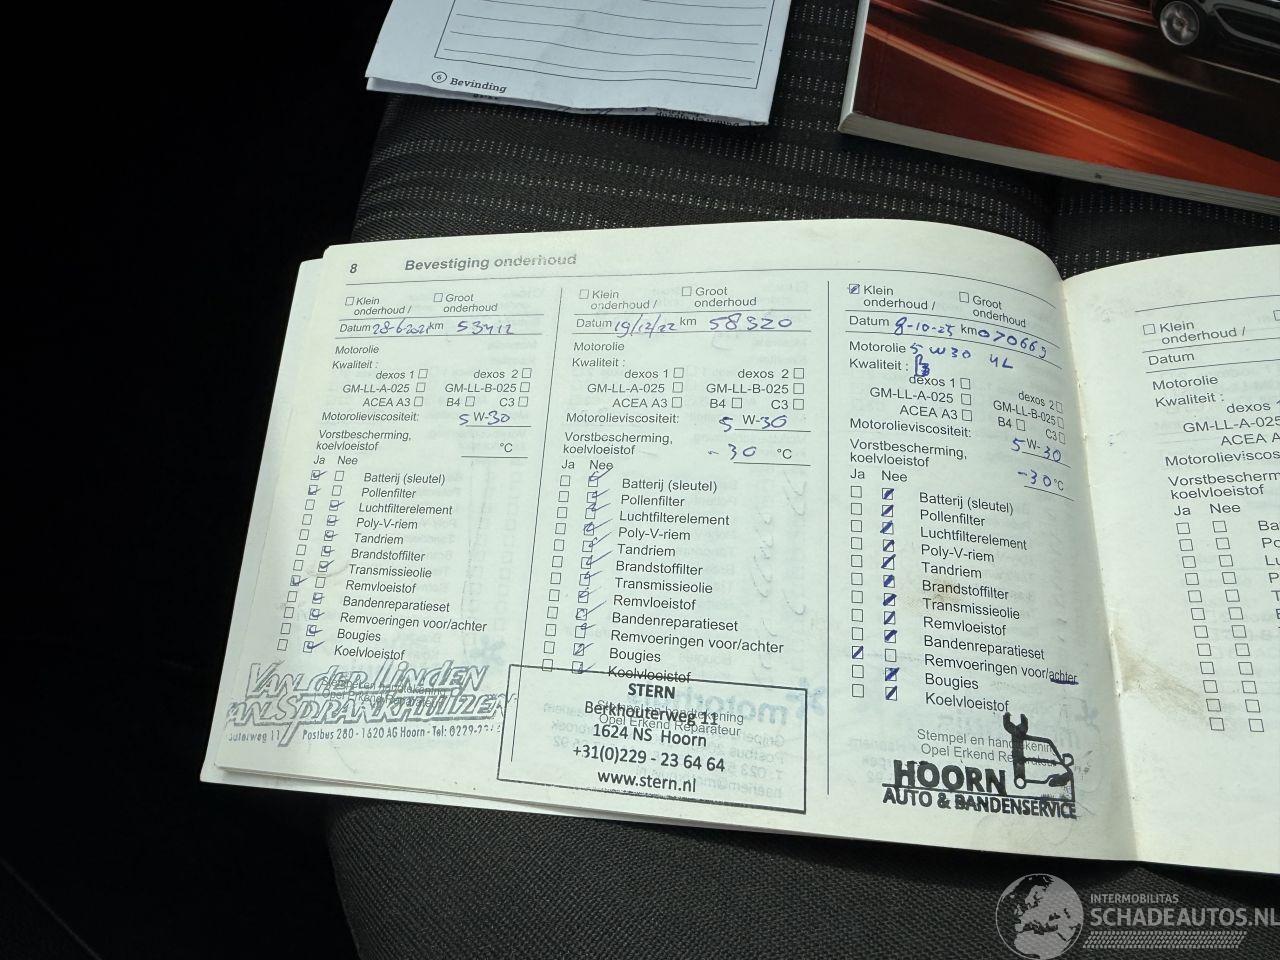 6 Bevinding
8 Bevestiging onderhoud
Klein onderhoud / Groot onderhoud
Datum 28-6-2021 km 53412
Motorolie
Kwaliteit :
dexos 1 dexos 2
GM-LL-A-025 GM-LL-B-025
ACEA A3 B4 C3
Motorolieviscositeit: 5 W-30
Vorstbescherming,
koelvloeistof °C
Ja Nee
Batterij (sleutel)
Pollenfilter
Luchtfilterelement
Poly-V-riem
Tandriem
Brandstoffilter
Transmissieolie
Remvloeistof
Bandenreparatieset
Remvoeringen voor/achter
Bougies
Koelvloeistof
Stempel en handtekening
Opel Erkend Reparateur
VAN DER LINDEN
VAN SPRANKHUIZEN
Postbus 280 - 1620 AG Hoorn - Tel: 0229-
Klein onderhoud / Groot onderhoud
Datum 19/12/22 km 58320
Motorolie
Kwaliteit :
dexos 1 dexos 2
GM-LL-A-025 GM-LL-B-025
ACEA A3 B4 C3
Motorolieviscositeit: 5 W-30
Vorstbescherming,
koelvloeistof -30 °C
Ja Nee
Batterij (sleutel)
Pollenfilter
Luchtfilterelement
Poly-V-riem
Tandriem
Brandstoffilter
Transmissieolie
Remvloeistof
Bandenreparatieset
Remvoeringen voor/achter
Bougies
Koelvloeistof
Stempel en handtekening
Opel Erkend Reparateur
STERN
Berkhouterweg 11
1624 NS Hoorn
+31(0)229 - 23 64 64
www.stern.nl
Klein onderhoud / Groot onderhoud
Datum 9-10-25 km 070669
Motorolie 5W30 4L
Kwaliteit :
dexos 1 dexos 2
GM-LL-A-025 GM-LL-B-025
ACEA A3 B4 C3
Motorolieviscositeit: 5 W-30
Vorstbescherming,
koelvloeistof -30 °C
Ja Nee
Batterij (sleutel)
Pollenfilter
Luchtfilterelement
Poly-V-riem
Tandriem
Brandstoffilter
Transmissieolie
Remvloeistof
Bandenreparatieset
Remvoeringen voor/achter
Bougies
Koelvloeistof
Stempel en handtekening
Opel Erkend
HOORN
AUTO & BANDENSERVICE
Klein
onderhoud /
Datum
Motorolie
Kwaliteit :
dexos
GM-LL-A-02
ACEA A
Motorolieviscosite
Vorstbescherm
koelvloeistof
Ja Nee
INTERMOBILITAS
SCHADEAUTOS.NL